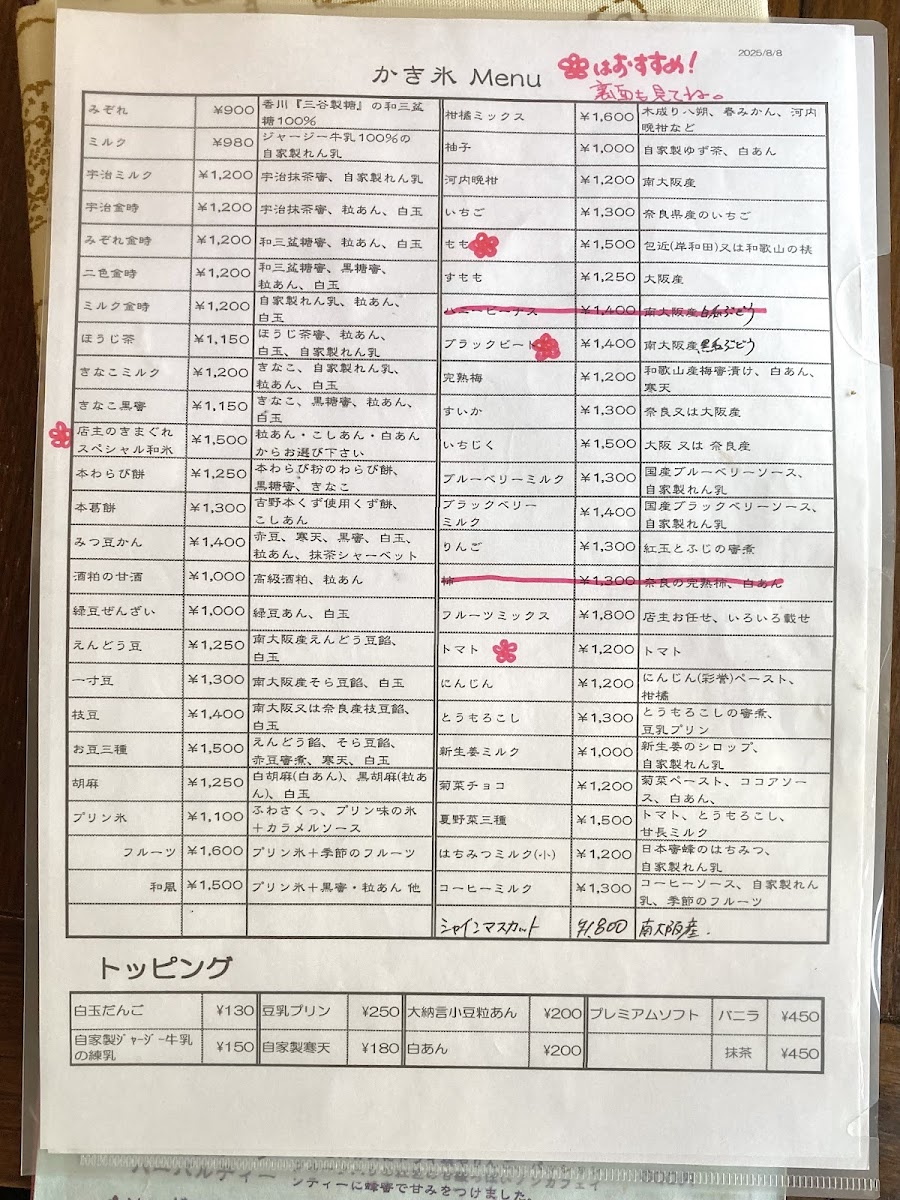 2025/8/8
かき氷 Menu
はおすすめ!
裏面も見てね。
みぞれ ¥900 香川『三谷製糖』の和三盆
糖100%
ミルク ¥980 ジャージー牛乳100%の
自家製れん乳
宇治ミルク ¥1,200 宇治抹茶蜜、自家製れん乳
宇治金時 ¥1,200 宇治抹茶蜜、粒あん、白玉
みぞれ金時 ¥1,200 和三盆糖蜜、粒あん、白玉
二色金時 ¥1,200 和三盆糖蜜、黒糖蜜、
粒あん、白玉
ミルク金時 ¥1,200 自家製れん乳、粒あん、
白玉
ほうじ茶 ¥1,150 ほうじ茶蜜、粒あん、
白玉、自家製れん乳
きなこミルク ¥1,200 きなこ、自家製れん乳、
粒あん、白玉
きなこ黒蜜 ¥1,150 きなこ、黒糖蜜、粒あん、
白玉
店主のきまぐれ
スペシャル和氷 ¥1,500 粒あん・こしあん・白あん
からお選び下さい
本わらび餅 ¥1,250 本わらび粉のわらび餅、
黒糖蜜、きなこ
本葛餅 ¥1,300 吉野本くず使用くず餅、
こしあん
みつ豆かん ¥1,400 赤豆、寒天、黒蜜、白玉、
粒あん、抹茶シャーベット
酒粕の甘酒 ¥1,000 高級酒粕、粒あん
緑豆ぜんざい ¥1,000 緑豆あん、白玉
えんどう豆 ¥1,250 南大阪産えんどう豆餡、
白玉
一寸豆 ¥1,300 南大阪産そら豆餡、白玉
枝豆 ¥1,400 南大阪又は奈良産枝豆餡、
白玉
お豆三種 ¥1,500 えんどう餡、そら豆餡、
赤豆蜜煮、寒天、白玉
胡麻 ¥1,250 白胡麻(白あん)、黒胡麻(粒あ
ん)、白玉
プリン氷 ¥1,100 ふわさくっ、プリン味の氷
+カラメルソース
フルーツ ¥1,600 プリン氷+季節のフルーツ
和風 ¥1,500 プリン氷+黒蜜・粒あん 他
柑橘ミックス ¥1,600 木成り八朔、春みかん、河内
晩柑など
柚子 ¥1,000 自家製ゆず茶、白あん
河内晩柑 ¥1,200 南大阪産
いちご ¥1,300 奈良県産のいちご
もも ¥1,500 包近(岸和田)又は和歌山の桃
すもも ¥1,250 大阪産
ハニービーナス ¥1,400 南大阪産白系ぶどう
ブラックビート ¥1,400 南大阪産黒系ぶどう
完熟梅 ¥1,200 和歌山産梅蜜漬け、白あん、
寒天
すいか ¥1,300 奈良又は大阪産
いちじく ¥1,500 大阪 又は 奈良産
ブルーベリーミルク ¥1,300 国産ブルーベリーソース、
自家製れん乳
ブラックベリー
ミルク ¥1,400 国産ブラックベリーソース、
自家製れん乳
りんご ¥1,300 紅玉とふじの蜜煮
柿 ¥1,300 奈良の完熟柿、白あん
フルーツミックス ¥1,800 店主お任せ、いろいろ載せ
トマト ¥1,200 トマト
にんじん ¥1,200 にんじん(彩誉)ペースト、
柑橘
とうもろこし ¥1,300 とうもろこしの蜜煮、
豆乳プリン
新生姜ミルク ¥1,000 新生姜のシロップ、
自家製れん乳
菊菜チョコ ¥1,200 菊菜ペースト、ココアソー
ス、白あん、
夏野菜三種 ¥1,500 トマト、とうもろこし、
甘長ミルク
はちみつミルク(小) ¥1,200 日本蜜蜂のはちみつ、
自家製れん乳
コーヒーミルク ¥1,300 コーヒーソース、自家製れん
乳、季節のフルーツ
シャインマスカット ¥1,800 南大阪産.
トッピング
白玉だんご ¥130 豆乳プリン ¥250 大納言小豆粒あん ¥200 プレミアムソフト バニラ ¥450
自家製ジャージー牛乳
の練乳 ¥150 自家製寒天 ¥180 白あん ¥200 抹茶 ¥450
ハーバルティー
ンティーに蜂蜜で甘みをつけました。